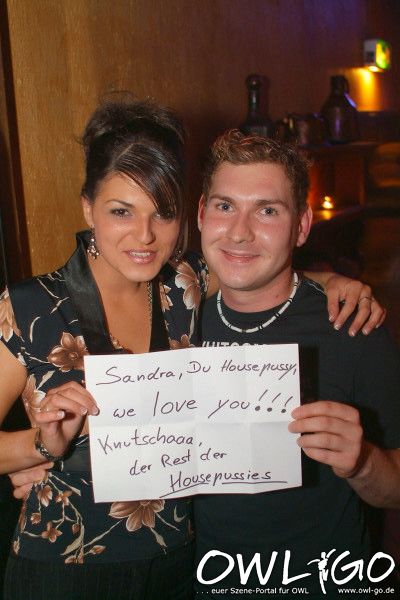 WHITCOM
Sandra, Du Housepussy,
we love you!!!
Knutschaaa,
der Rest der
Housepussies
OWL GO
. . . euer Szene-Portal für OWL www.owl-go.de